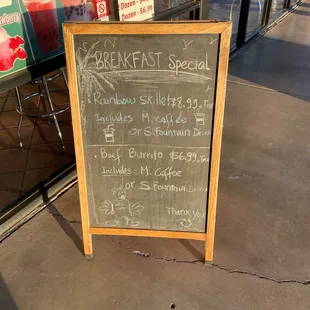 Dozen $4.
Dozen - $6.
BREAKFAST Special
Rainbow Skillet $8.99+Tax
Includes M. coffee
or S. Fountain Drink
Beef Burrito $6.99+Tax
Includes M. Coffee
or S. Fountain Drink
Thank you